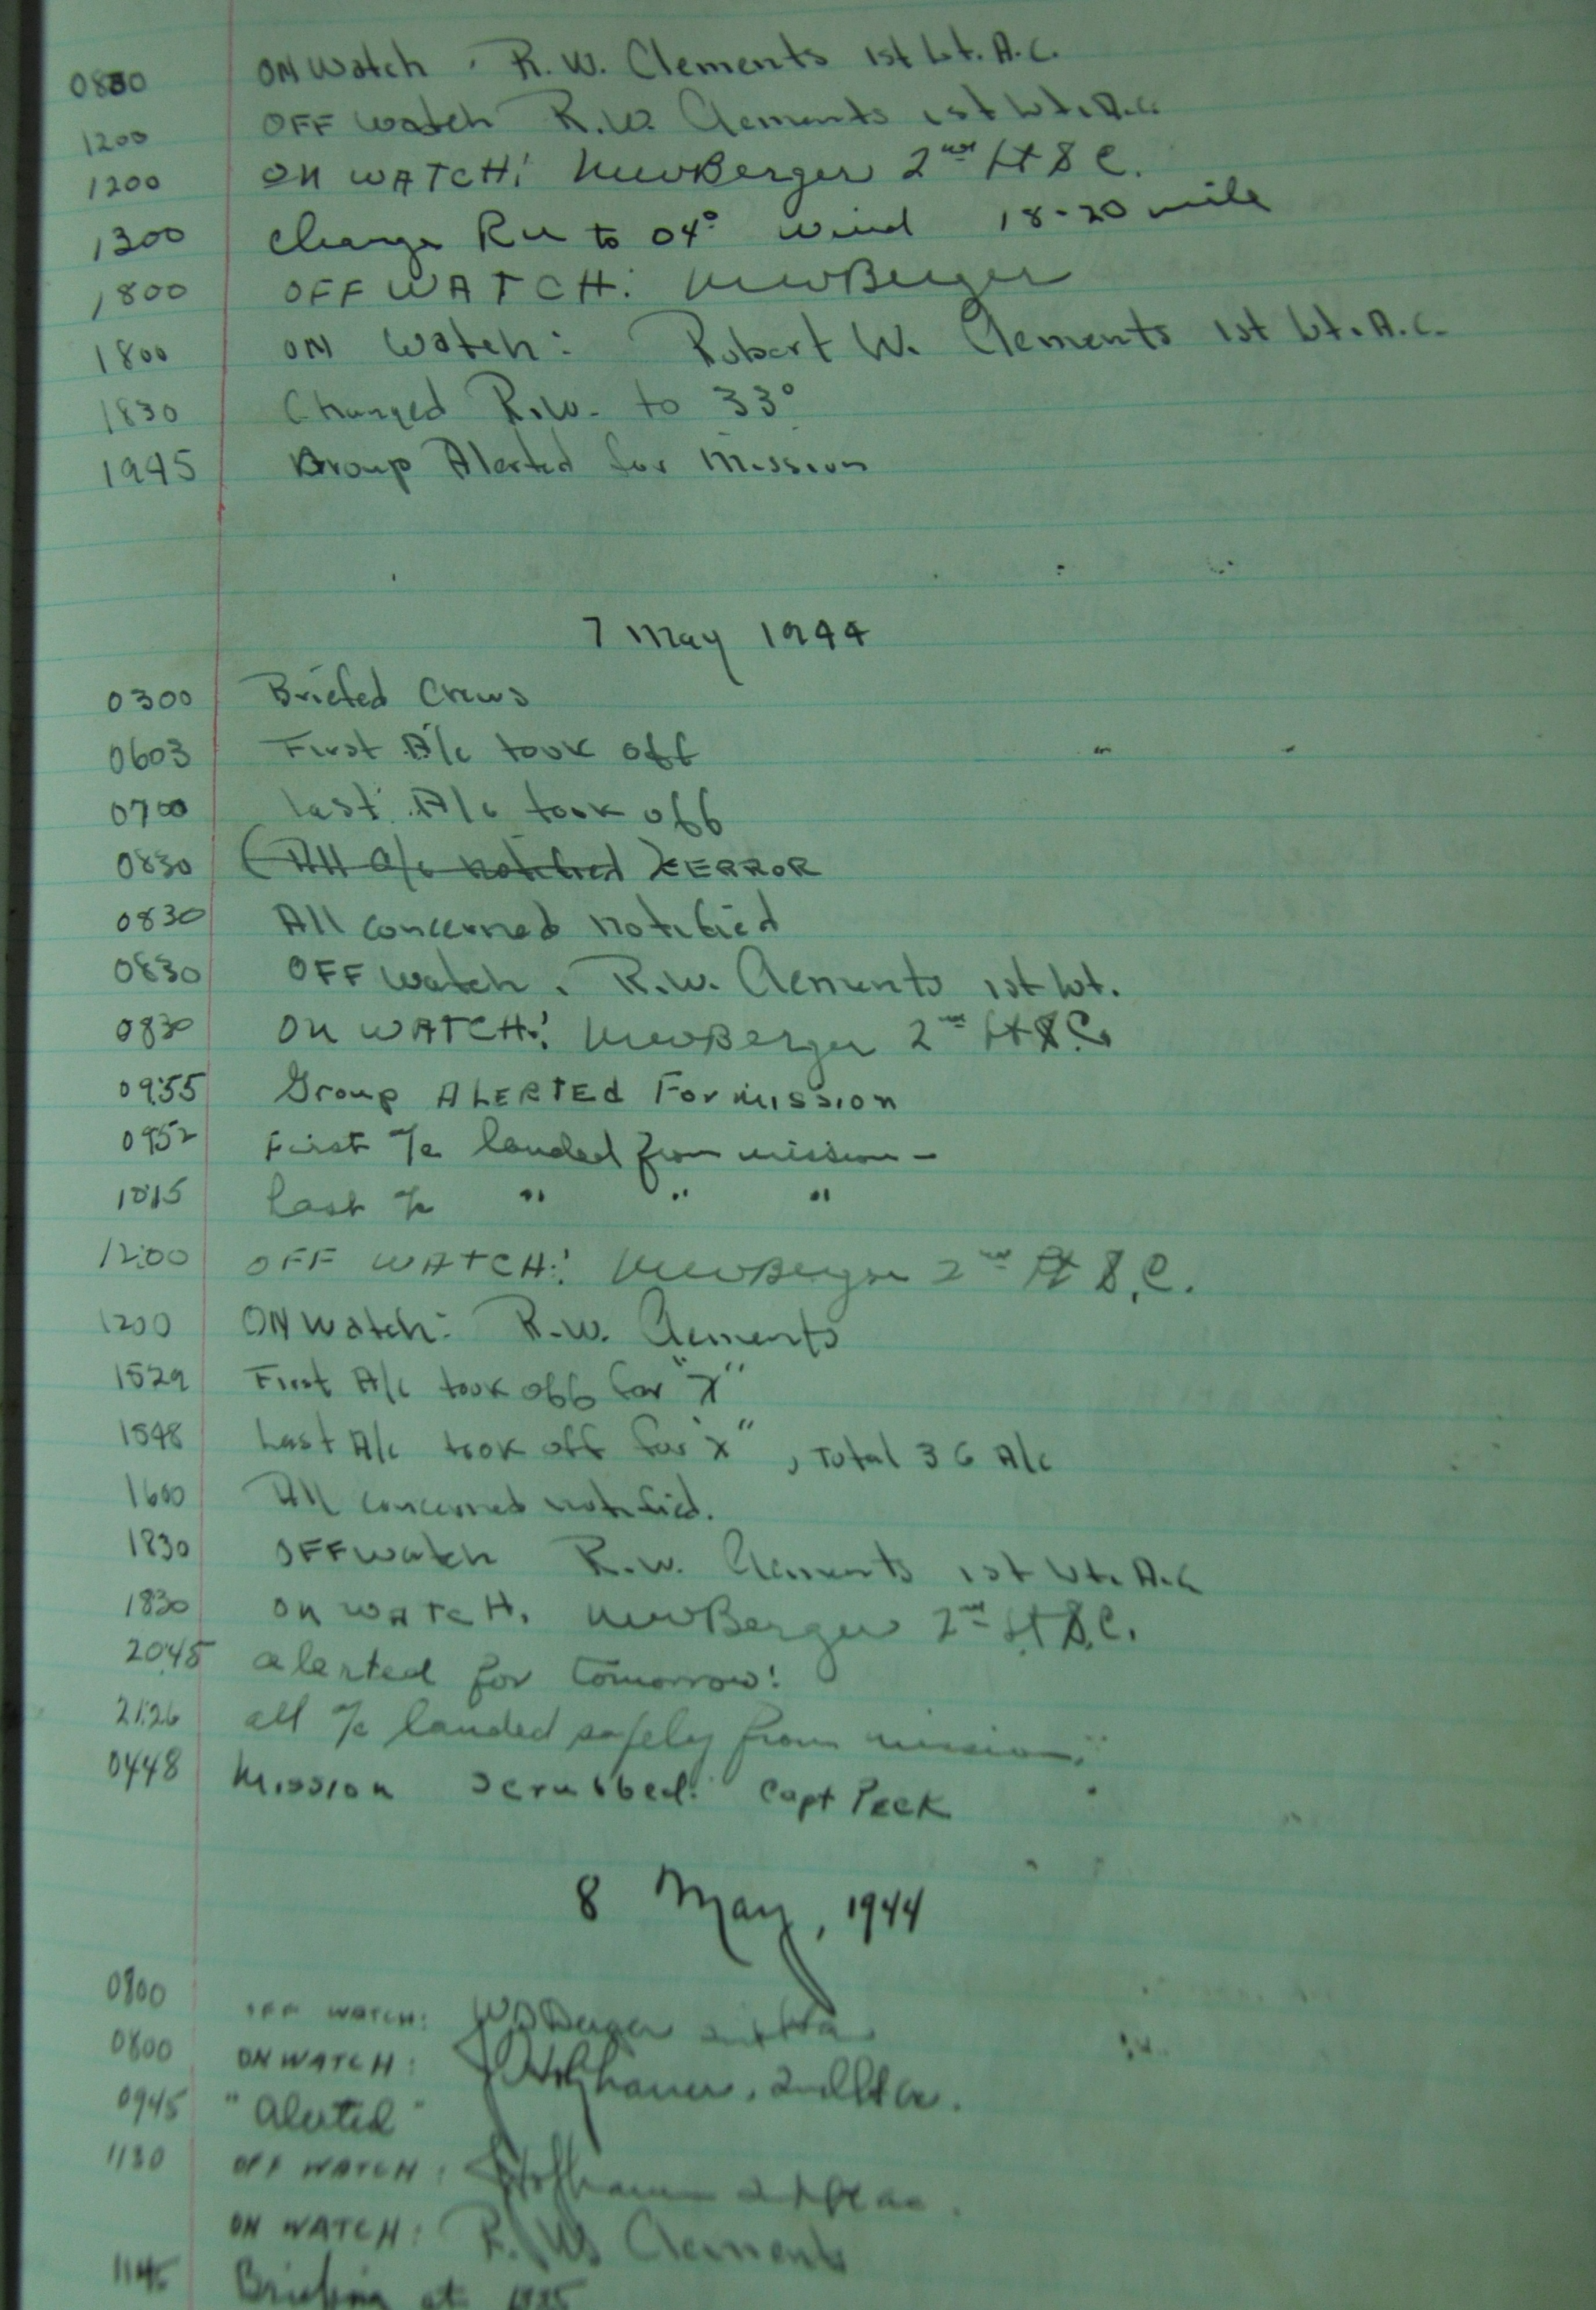 0830 ON Watch. R.W. Clements 1st Lt. A.C.
1200 OFF Watch R.W. Clements 1st Lt. A.C.
1200 ON WATCH: NewBerger 2nd Lt S C.
1300 Change Rw to 04° wind 18-20 mile
1800 OFF WATCH: NewBerger
1800 ON Watch: Robert W. Clements 1st Lt. A.C.
1830 Changed R.W. to 33°
1945 Group Alerted for Mission
7 May 1944
0300 Briefed Crews
0603 First A/c took off
0700 Last A/c took off
0830 (All a/c notified) ERROR
0830 All concerned notified
0830 OFF Watch. R.W. Clements 1st Lt.
0830 ON WATCH: NewBerger 2nd Lt S.C.
0955 Group ALERTED For mission
0952 First A/c landed from mission -
1015 Last A/c " " "
1200 OFF WATCH: NewBerger 2nd Lt S.C.
1200 ON Watch: R.W. Clements
1529 First A/c took off for "X"
1548 Last A/c took off for "X", Total 36 A/c
1600 All concerned notified.
1830 OFF Watch R.W. Clements 1st Lt. A.C
1830 ON WATCH. NewBerger 2nd Lt S.C.
2045 alerted for tomorrow!
2126 all A/c landed safely from mission.
0448 Mission Scrubbed: Capt Peck
8 May, 1944
0800 OFF WATCH:
0800 ON WATCH: 2nd Lt
0945 "Alerted"
1130 OFF WATCH:
ON WATCH: R. W. Clements
1145 Briefing at